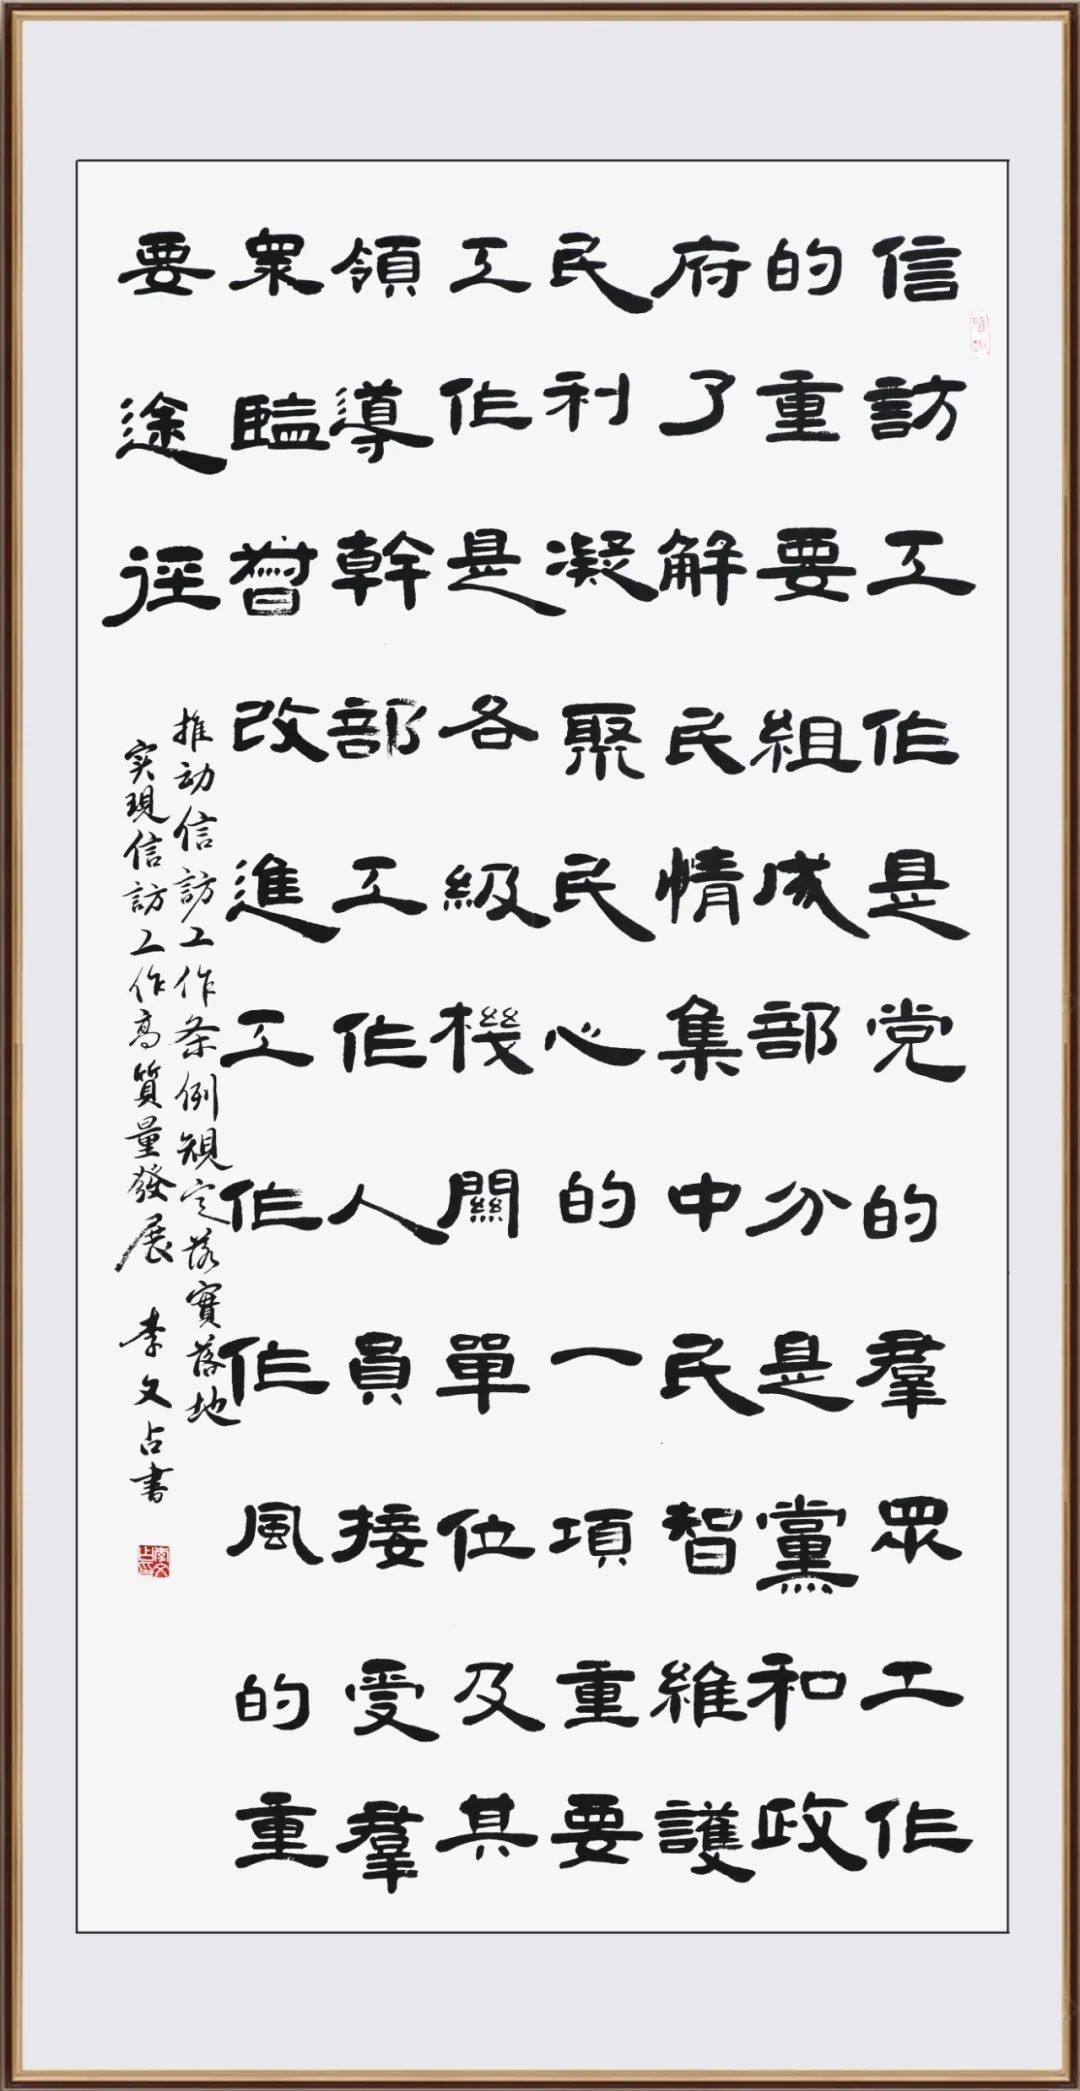 信訪工作是党的羣眾工作
的重要組成部分是黨和政
府了解民情集中民智維護
民利凝聚民心的一項重要
工作是各級機關單位及其
領導幹部工作人員接受羣
衆監督改進工作作風的重
要途徑
推动信訪工作条例規定落實落地
实現信訪工作高質量發展 李文占書